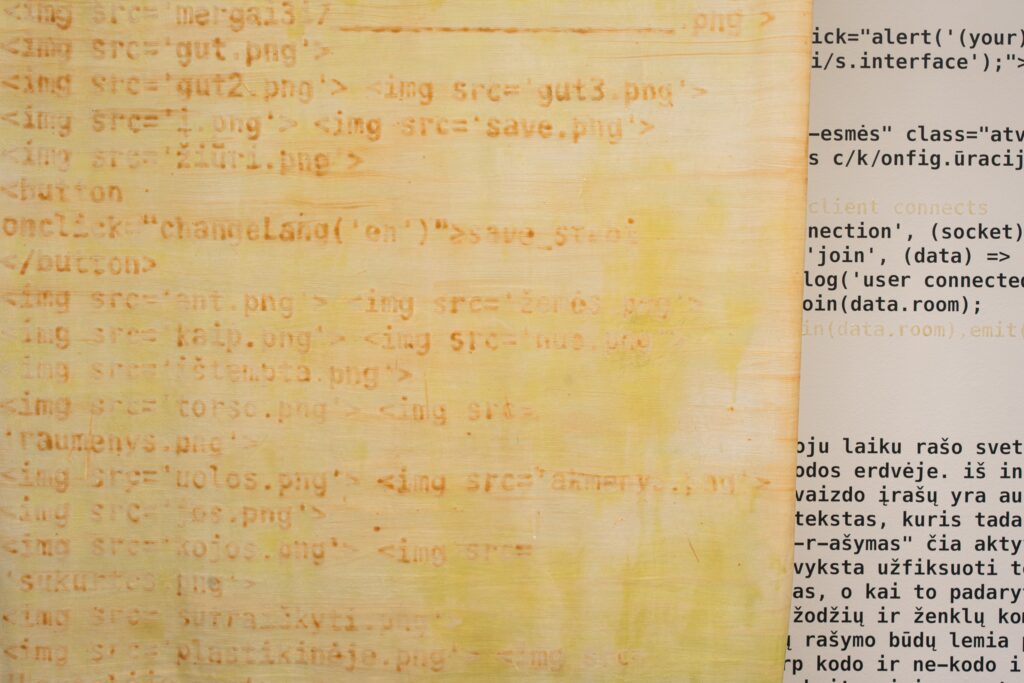 <img src='mergai317
.png'>
<img src='gut.png'>
<img src='gut2.png'> <img src='gut3.png'>
<img src='į.png'> <img src='save.png'>
<img src='žiūri.png'>
<button
onclick="changeLang('en')">
</button>
<img src='ant.png'> <img src='žemės.png'>
<img src='kaip.png'> <img src='nuo.png'>
<img src='ištempta.png'>
<img src='torso.png'> <img src=
'raumenys.png'>
<img src='uolos.png'> <img src='akmenys.png'>
<img src='jos.png'>
<img src='kojos.png'> <img src=
'sukurtos.png'>
<img src='surraiūkyti.png'>
<img src='plastikinėje.png'> <img src=
ick="alert('(your)
i/s.interface');">
-esmės" class="atv
s c/k/onfig.ūracij
client connects
nnection', (socket)
'join', (data) =>
log('user connected
oin(data.room);
in(data.room),emit(
oju laiku rašo svet
odos erdvėje. iš in
vaizdo įrašų yra au
tekstas, kuris tada
-r-ašymas" čia akty
vyksta užfiksuoti te
as, o kai to padary
žodžių ir ženklų kom
ų rašymo būdų lemia p
rp kodo ir ne-kodo i